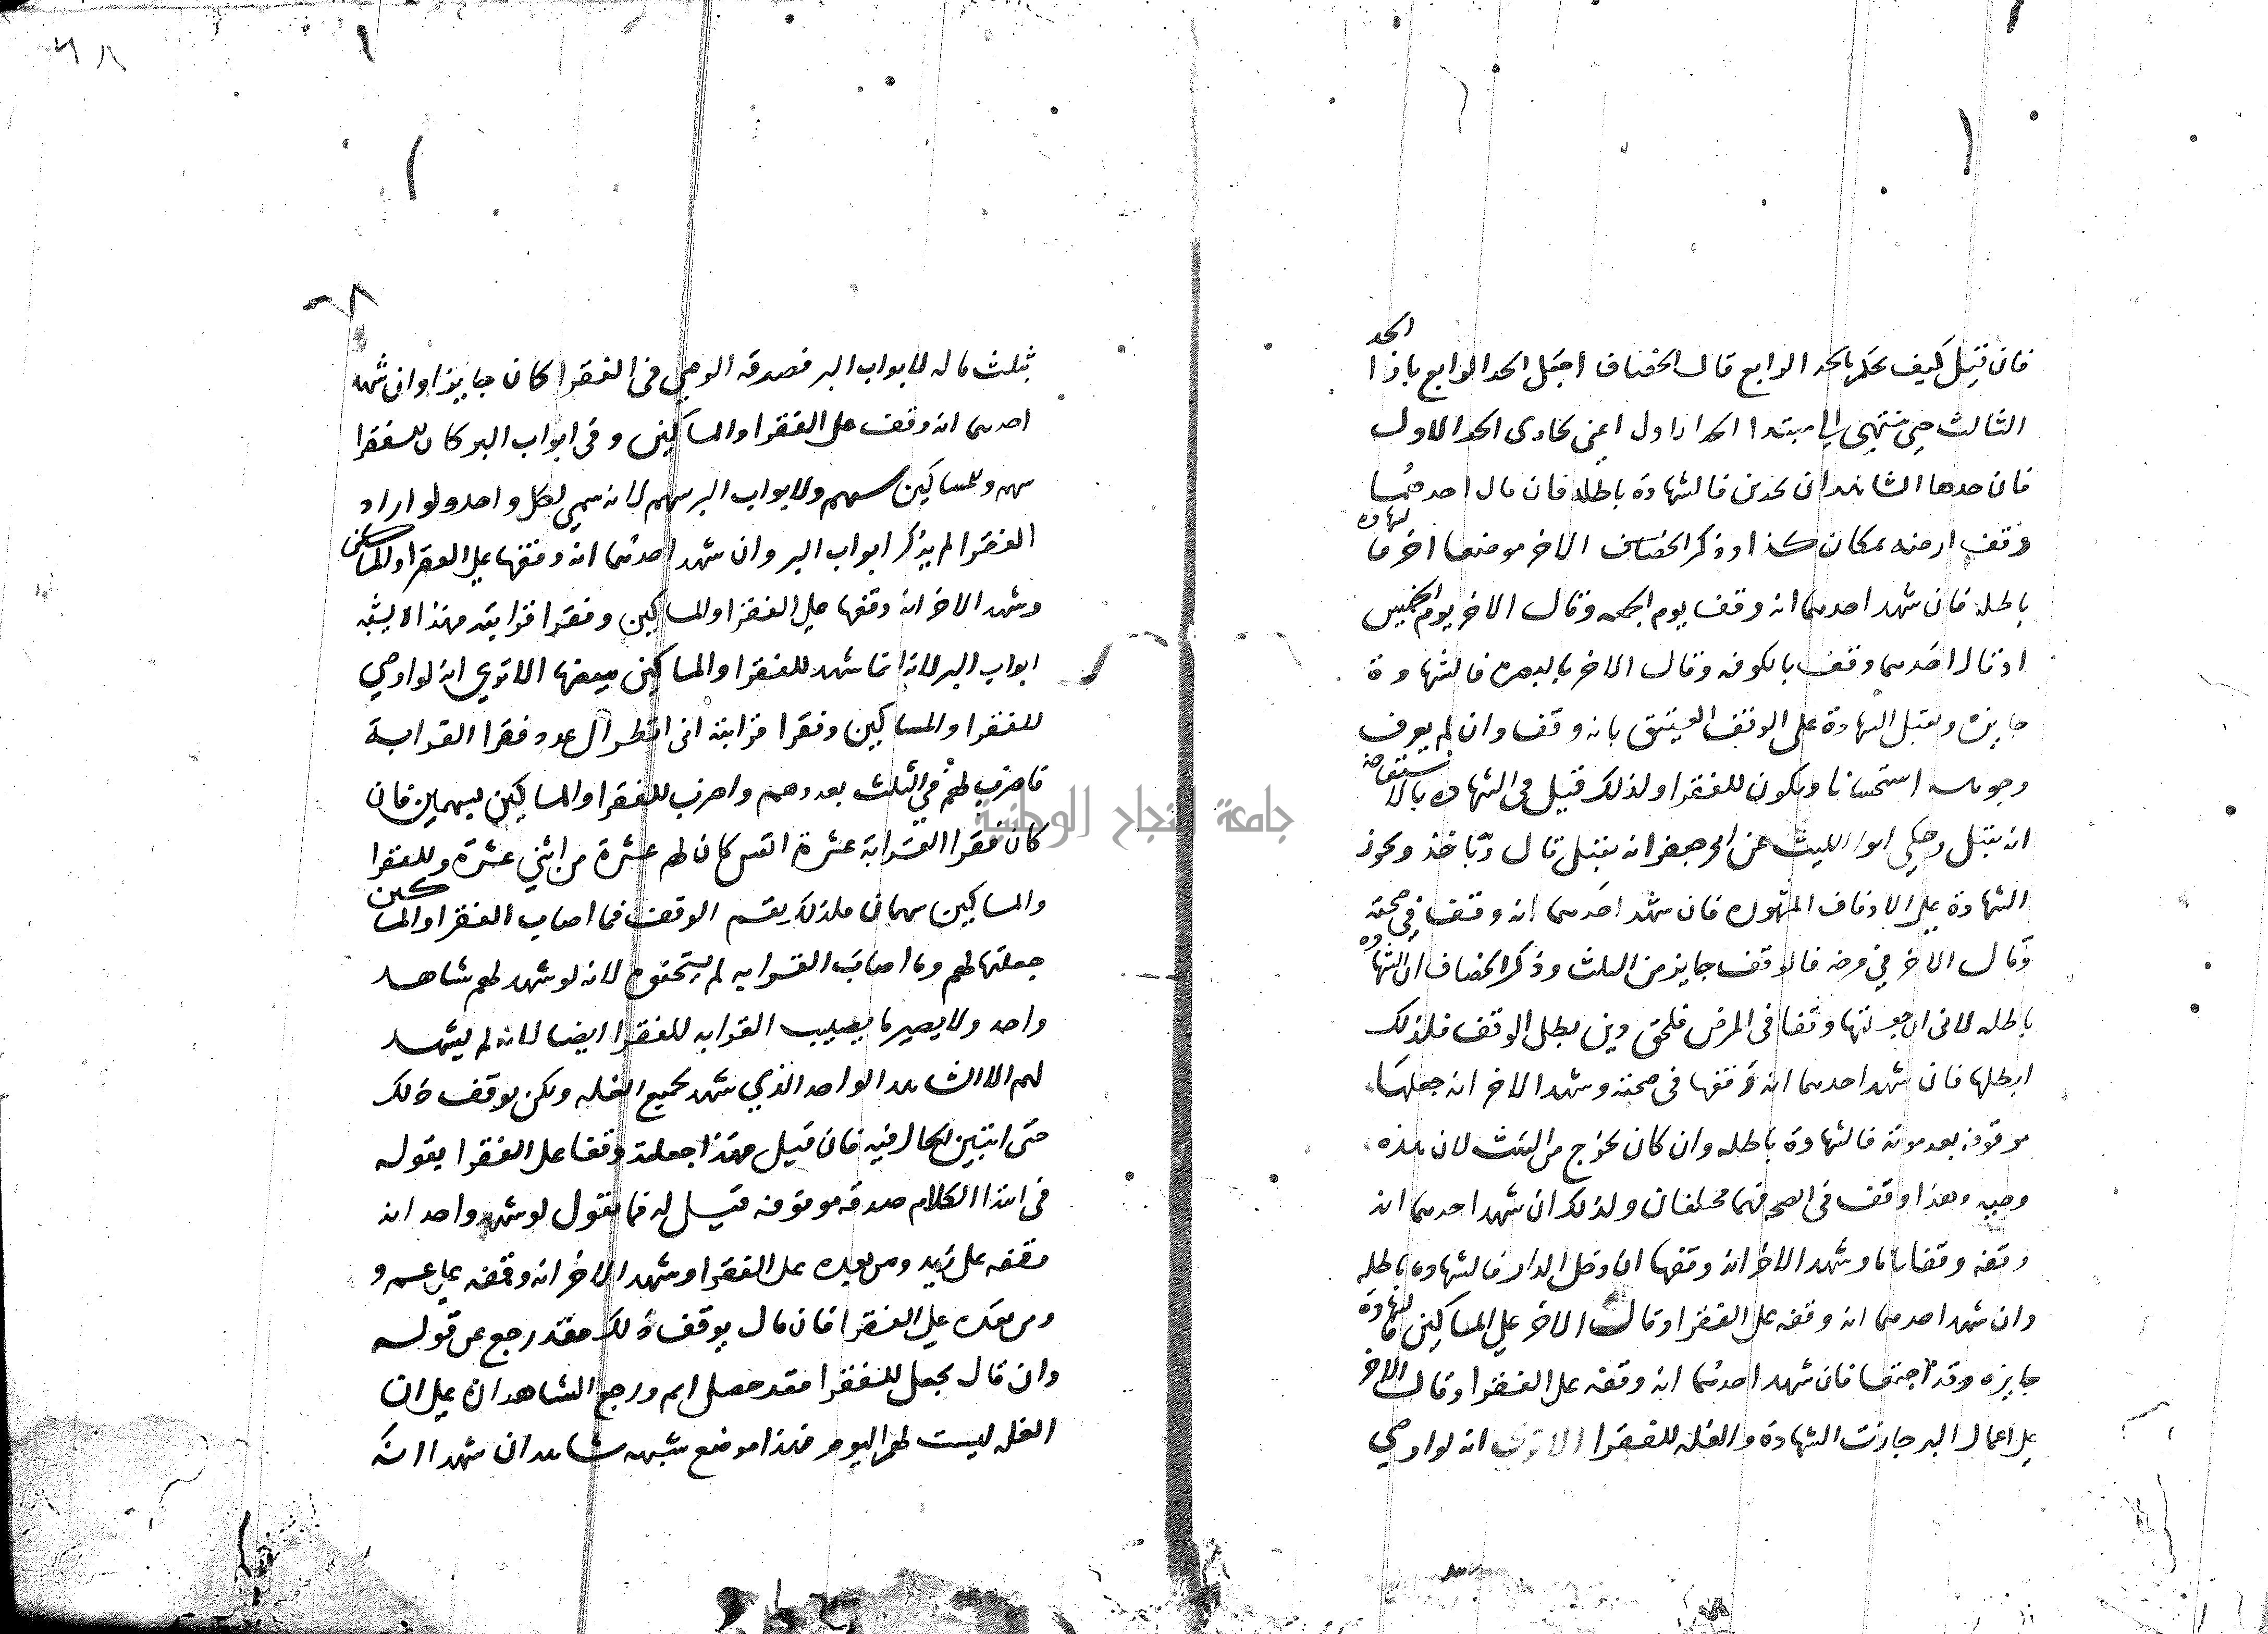 الحد
فان قيل كيف نحكم بالحد الرابع قال الخصاف اجعل الحد الرابع بازا
الثالث حتى ينتهي الى مبتدا الحد الاول اعني يحاذى الحد الاول
فان حدها الشاهدان بحدين فالشهادة باطلة فان قال احدهما
وقف ارضه بمكان كذا وذكر الخصاف الاخر موضعا اخر فالشهادة
باطلة فان شهد احدهما انه وقف يوم الجمعه وقال الاخر يوم الخميس
او قال احدهما وقف بالكوفه وقال الاخر بالبصره فالشهادة
جايزه وتقبل الشهادة على الوقف العتيق بانه وقف وان لم يعرف
وجوهه استحسانا ويكون للفقرا ولذلك قيل في الشهاده بالاستفاضة
انه يقبل وحكى ابو الليث عن ابي جعفر انه يقبل قال وبه ناخذ وتجوز
الشهادة على الاوقاف المشهوره فان شهد احدهما انه وقف في صحته
وقال الاخر في مرضه فالوقف جايز من الثلث وذكر الخصاف ان الشهاده
باطله لانى ان جعلتها وقفا فى المرض فلحق دين بطل الوقف فلذلك
ابطلها فان شهد احدهما انه وقفها فى صحته وشهد الاخر انه جعلها
موقوفه بعد موته فالشهادة باطله وان كان يخرج من الثلث لان هذه
وصيه وهذا وقف فى الصحه فهما مختلفان ولذلك ان شهد احدهما انه
وقفه وقفا باتا وشهد الاخر انه وقفها ان دخل الدار فالشهاده باطله
وان شهد احدهما انه وقفه على الفقرا وقال الاخر على المساكين فالشهادة
جايزه وقد اجتمعا فان شهد احدهما انه وقفه على الفقرا وقال الاخر
على اعمال البر جازت الشهادة والغله للفقرا الا ترى انه لو اوصى
٦٨
بثلث ماله لابواب البر فصدقه الوصي فى الفقرا كان جايزا وان شهد
احدهما انه وقف على الفقرا والمساكين وفى ابواب البر كان للفقرا
سهم وللمساكين سهم ولابواب البر سهم لانه سمى لكل واحد ولو اراد
الفقرا لم يذكر ابواب البر وان شهد احدهما انه وقفها على الفقرا والمساكين
وشهد الاخر انه وقفها على الفقرا والمساكين وفقرا قرابته فهذا لا يشبه
ابواب البر لانه انما شهد للفقرا والمساكين ببعضها الا ترى انه لو اوصي
للفقرا والمساكين وفقرا قرابته انى انظر الى عدد فقرا القرابة
فاضرب لهم في الثلث بعددهم واضرب للفقرا والمساكين بسهمين فان
كان فقرا القرابة عشرة انفس كان لهم عشرة من اثني عشرة وللفقرا
والمساكين سهمان فلذلك يقسم الوقف فما اصاب الفقرا والمساكين
جعلتها لهم وما اصاب القرابه لم يستحقوه لانه لو شهد لهم شاهد
واحد ولا يصير ما يصيب القرابه للفقرا ايضا لانه لم يشهد
لهم الا الشاهد الواحد الذي شهد بجميع الغله ولكن يوقف ذلك
حتى اتبين الحال فيه فان قيل فهذا جعلته وقفا على الفقرا بقوله
فى ابتدا الكلام صدقه موقوفه قيل له فما تقول لو شهد واحد انه
وقفه على زيد ومن بعده على الفقرا وشهد الاخر انه وقفه على عمرو
ومن بعده على الفقرا فان قال يوقف ذلك فقد رجع عن قوله
وان قال يجعل للفقرا فقد حصل لهم ورجع الشاهدان على ان
الغله ليست لهم اليوم فهذا موضع شبهه شاهدان شهدا انه
جامعة النجاح الوطنية